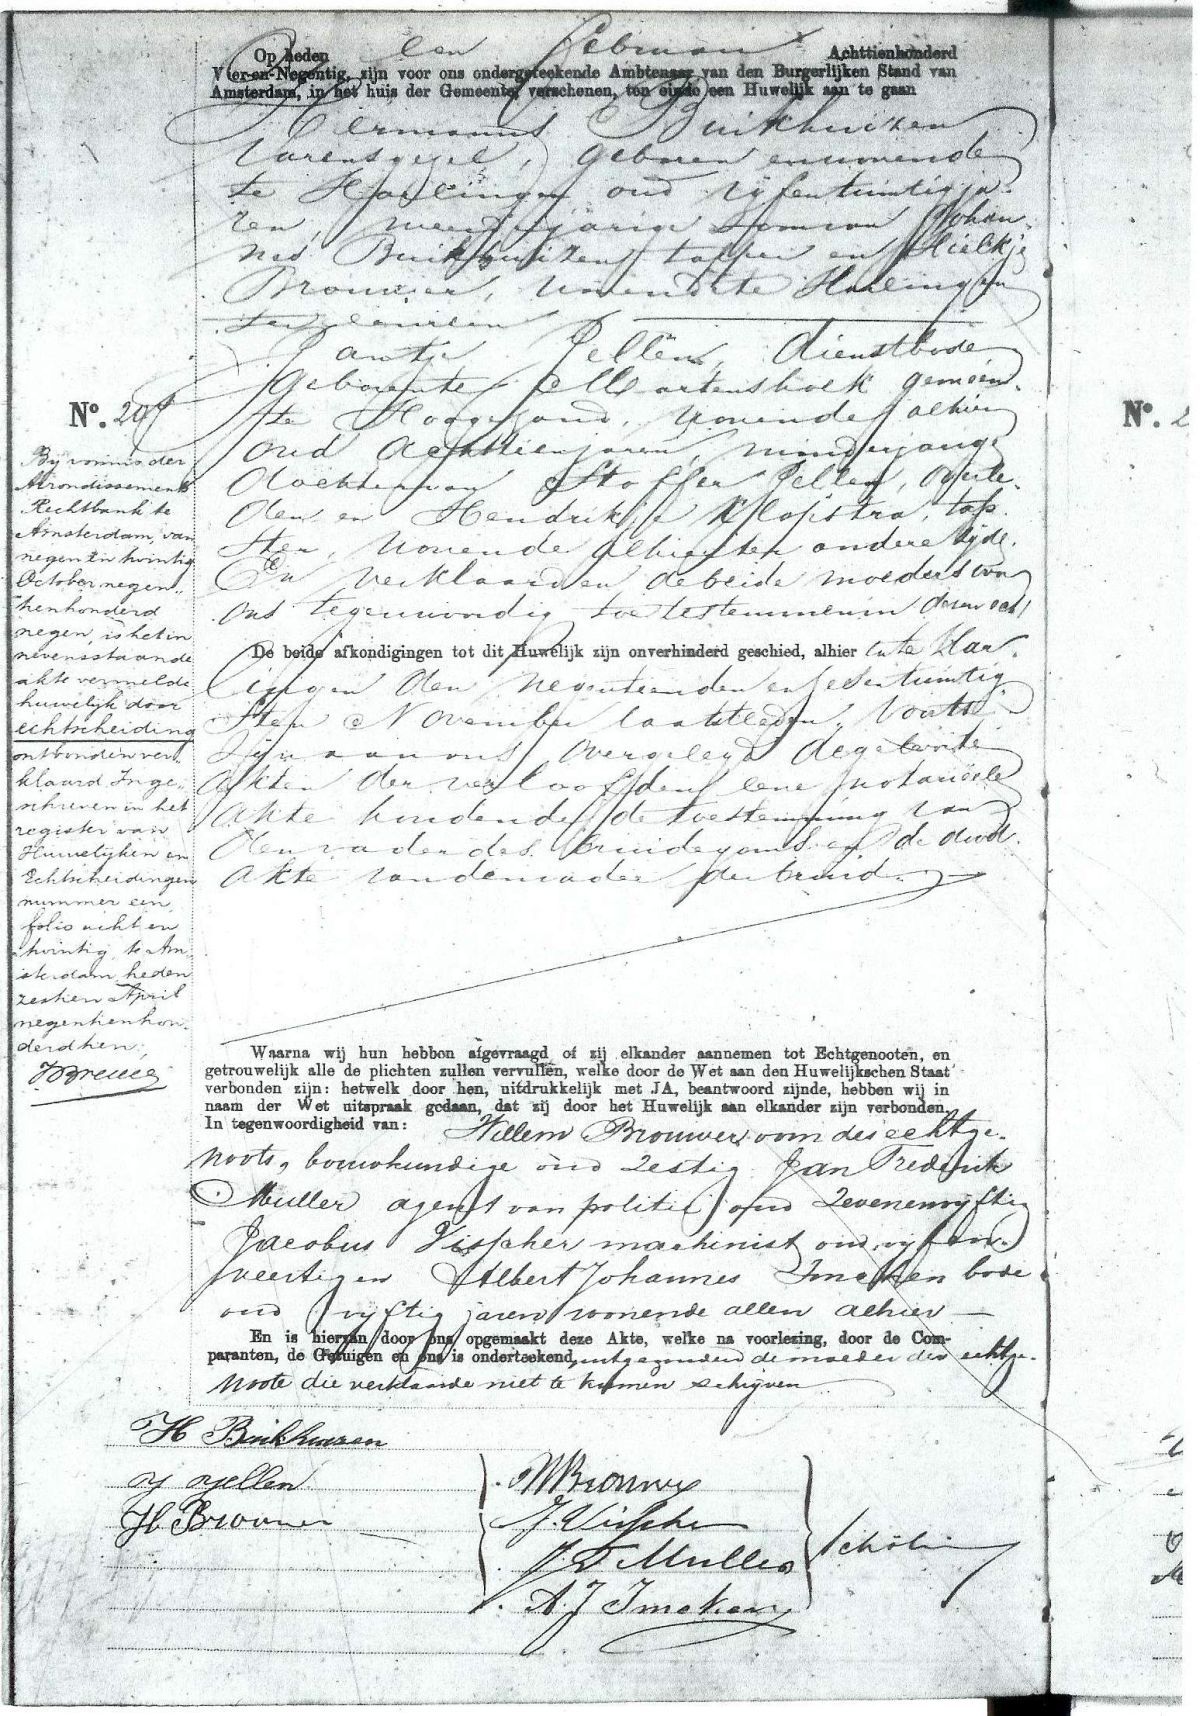 Op heden een Februari Achttienhonderd
Vier-en-Negentig, zijn voor ons ondergeteekende Ambtenaar van den Burgerlijken Stand van
Amsterdam, in het huis der Gemeente, verschenen, ten einde een Huwelijk aan te gaan
Hermanus Buikhuizen
varensgezel, geboren en wonende
te Harlingen oud vijfentwintig ja-
ren, meerderjarige zoon van Johan-
nes Buikhuizen, tapper en Hielkje
Brouwer, wonende te Harlingen
ter eenre en
Jantje Jellen, dienstbode,
geboren te Martenshoek gemeen-
te Hoogezand, wonende alhier
oud achttien jaren, minderjarige
dochter van Stoffer Jellen, overle-
den en Hendrikje Klopstra, tap-
ster, wonende alhier ter andere zijde.
En verklaarden de beide moeders voor
ons tegenwoordig toe te stemmen in dezen echt
De beide afkondigingen tot dit Huwelijk zijn onverhinderd geschied, alhier en te Har-
lingen den negentienden en zesentwintig
sten November laatstleden. Voorts
zijn aan ons overgelegd de geboorte
akten der verloofden, eene notariëele
akte houdende de toestemming van
den vader des bruidegoms en de dood
akte van den vader der bruid.
No. 29
Bij vonnis der
Arrondissements
Rechtbank te
Amsterdam, van
negen en twintig
October negen-
tienhonderd
negen, is het in
nevensstaande
akte vermelde
huwelijk door
echtscheiding
ontbonden ver-
klaard. Inge-
schreven in het
register van
Huwelijken en
Echtscheidingen
nummer een,
folio acht en
twintig, te Am-
sterdam, heden
zestien April
negentienhon-
derd tien.
Waarna wij hun hebben afgevraagd of zij elkander aannemen tot Echtgenooten, en
getrouwelijk alle de plichten zullen vervullen, welke door de Wet aan den Huwelijkschen Staat
verbonden zijn: hetwelk door hen, uitdrukkelijk met JA, beantwoord zijnde, hebben wij in
naam der Wet uitspraak gedaan, dat zij door het Huwelijk aan elkander zijn verbonden.
In tegenwoordigheid van: Willem Brouwer, oom des echtge-
noots, bouwkundige oud zestig, Jan Frederik
Muller agent van politie, oud zevenenvijftig
Jacobus Visscher machinist oud vijfen-
veertig en Albert Johannes Imeken bode
oud vijftig jaren wonende allen alhier
En is hiervan door ons opgemaakt deze Akte, welke na voorlezing, door de Com-
paranten, de Getuigen en ons is onderteekend, uitgezonderd de moeder der echtge-
noote die verklaarde niet te kunnen schrijven
H Buikhuizen
J Jellen
H Brouwer
W Brouwer
J. Visscher
J. F Muller
A. J Imeken
No.